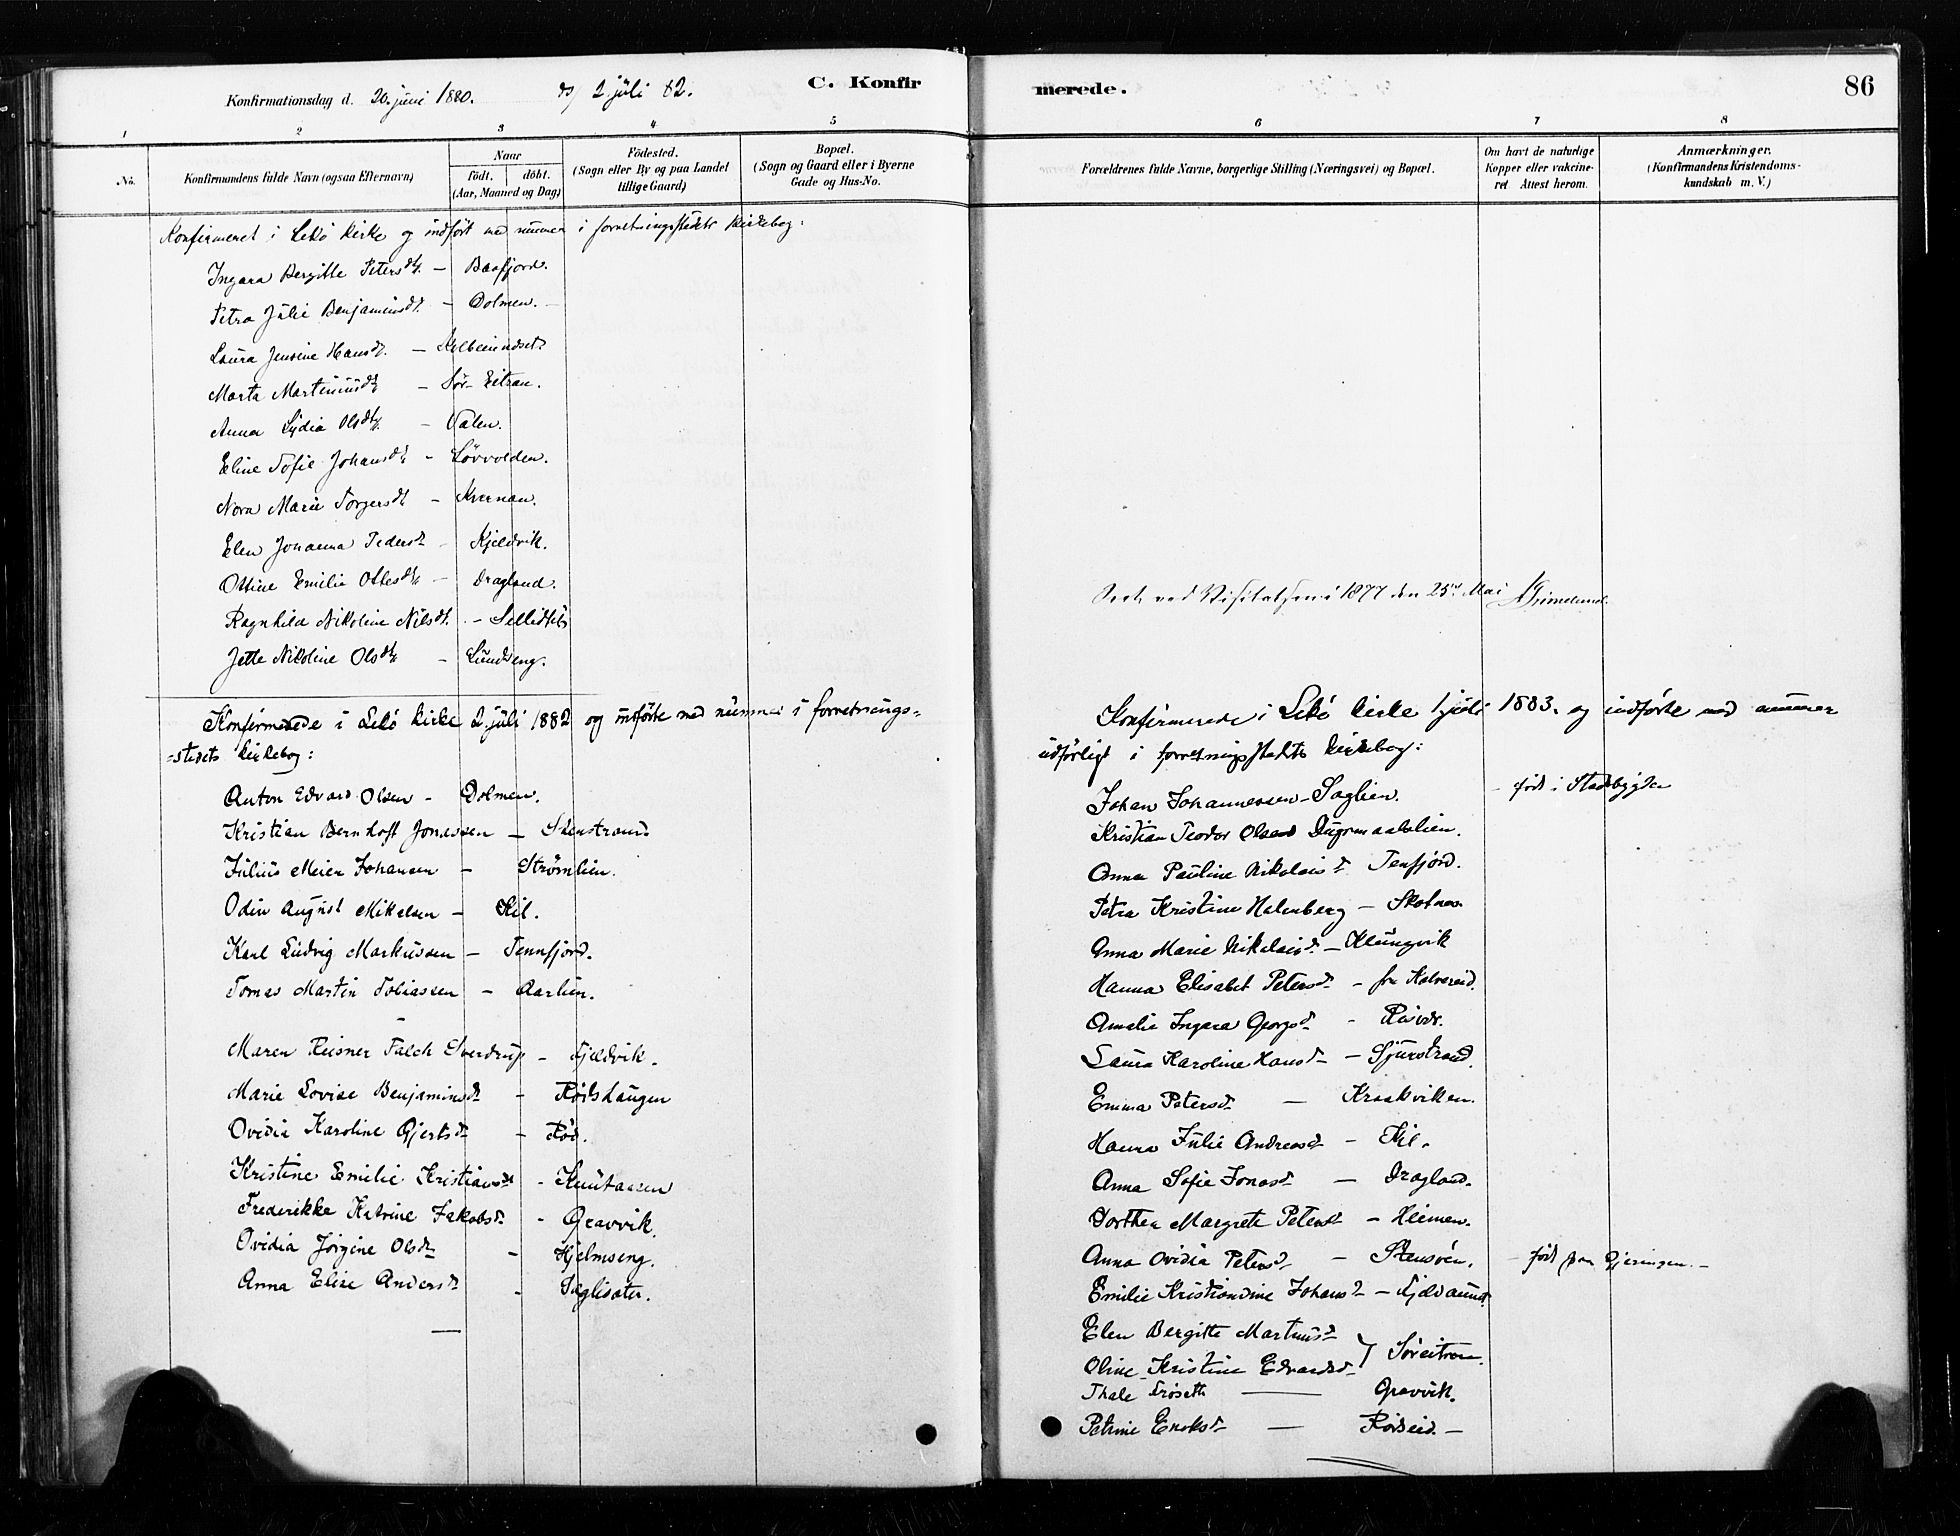 Konfirmationsdag d. 20. juni 1880. og 2 juli 82.
C. Konfirmerede.
86
1 2 3 4 5 6 7 8
No.
Konfirmandens fulde Navn (ogsaa Efternavn)
Naar
födt. döbt.
(Aar, Maaned og Dag)
Födested.
(Sogn eller By og paa Landet
tillige Gaard)
Bopæl.
(Sogn og Gaard eller i Byerne
Gade og Hus-No.
Forældrenes fulde Navne, borgerlige Stilling (Næringsvei) og Bopæl.
Om havt de naturlige
Kopper eller vakcine-
ret. Attest herom.
Anmærkninger.
(Konfirmandens Kristendoms-
kundskab m. V.)
Konfirmeret i Lekö kirke og indfört med nummer i forretningsstedets kirkebog:
Ingara Bergitte Petersdt. – Baafjord.
Petra Julie Benjaminsdt. – Dolmen. –
Laura Jensine Hansdt. –
Marta Martinusdt. – Sör-Eitran.
Anna Lydia Olsdt. – Valen.
Eline Sofie Johansdt. – Lövvolden.
Nora Marie Torgersdt. – Kvernan.
Elen Johanna Pedersdt. – Kjeldvik.
Ottine Emilie Ottesdt. – Dragland.
Ragnhild Nikoline Nilsdt. –
Jette Nikoline Olsdt. – Lundseng.
Konfirmerede i Lekö kirke 2 juli 1882 og indförte med nummer i forretnings=
=stedets kirkebog:
Anton Edvard Olsen – Dolmen.
Kristian Bernhoft Jonassen – Stenstrand
Julius Meier Johansen – Strömlien.
Odin August Mikelsen – Kil.
Karl Ludvig Markussen – Tennfjord.
Tomas Martin Tobiassen – Aarlien.
Maren Reisner Falch Sverdrup – Kjeldvik.
Marie Lovise Benjaminsdt – Rödshaugen
Ovidia Karoline Gjertsdt – Röd.
Kristine Emilie Kristiansdt – Knutaasen
Frederikke Katrine Jakobsdt – Gravvik.
Ovidia Jörgine Olsdt – Hjelmseng.
Anna Elise Andersdt – Saglisater.
Seet ved Visitatsen i 1877 den 25de Mai Grimelund.
Konfirmerede i Lekö kirke 1 juli 1883. og indförte med nummer
udförligt i forretningsstedets kirkebog:
Johan Johannessen – Saglien. – födt i Stadsbygden
Kristian Teodor Olsen Dugurmaalslien.
Anna Pauline Nikolaisdt Tenfjord.
Petra Kristine Halenberg – Skotnes.
Anna Marie Nikolaisdt – Klungvik
Hanna Elisabet Petersdt – fra Kolvereid.
Amalie Ingara Georgsdt –
Laura Karoline Hansdt – Sjurstrand.
Emma Petersdt – Kraakviken.
Hanna Julie Andreasdt – Kil.
Anna Sofie Jonasdt – Dragland.
Dorthea Margrete Petersdt – Heimen.
Anna Ovidia Petersdt – Stensöen. – födt paa Gjeringen. –
Emilie Kristiandine Johansdt – Kjeldsund.
Elen Bergitte Martinusdt
Oline Kristine Edvardsdt } Söreitran.
Thale Fröseth – Gravvik.
Petrine Enoksdt – Rödseid. –